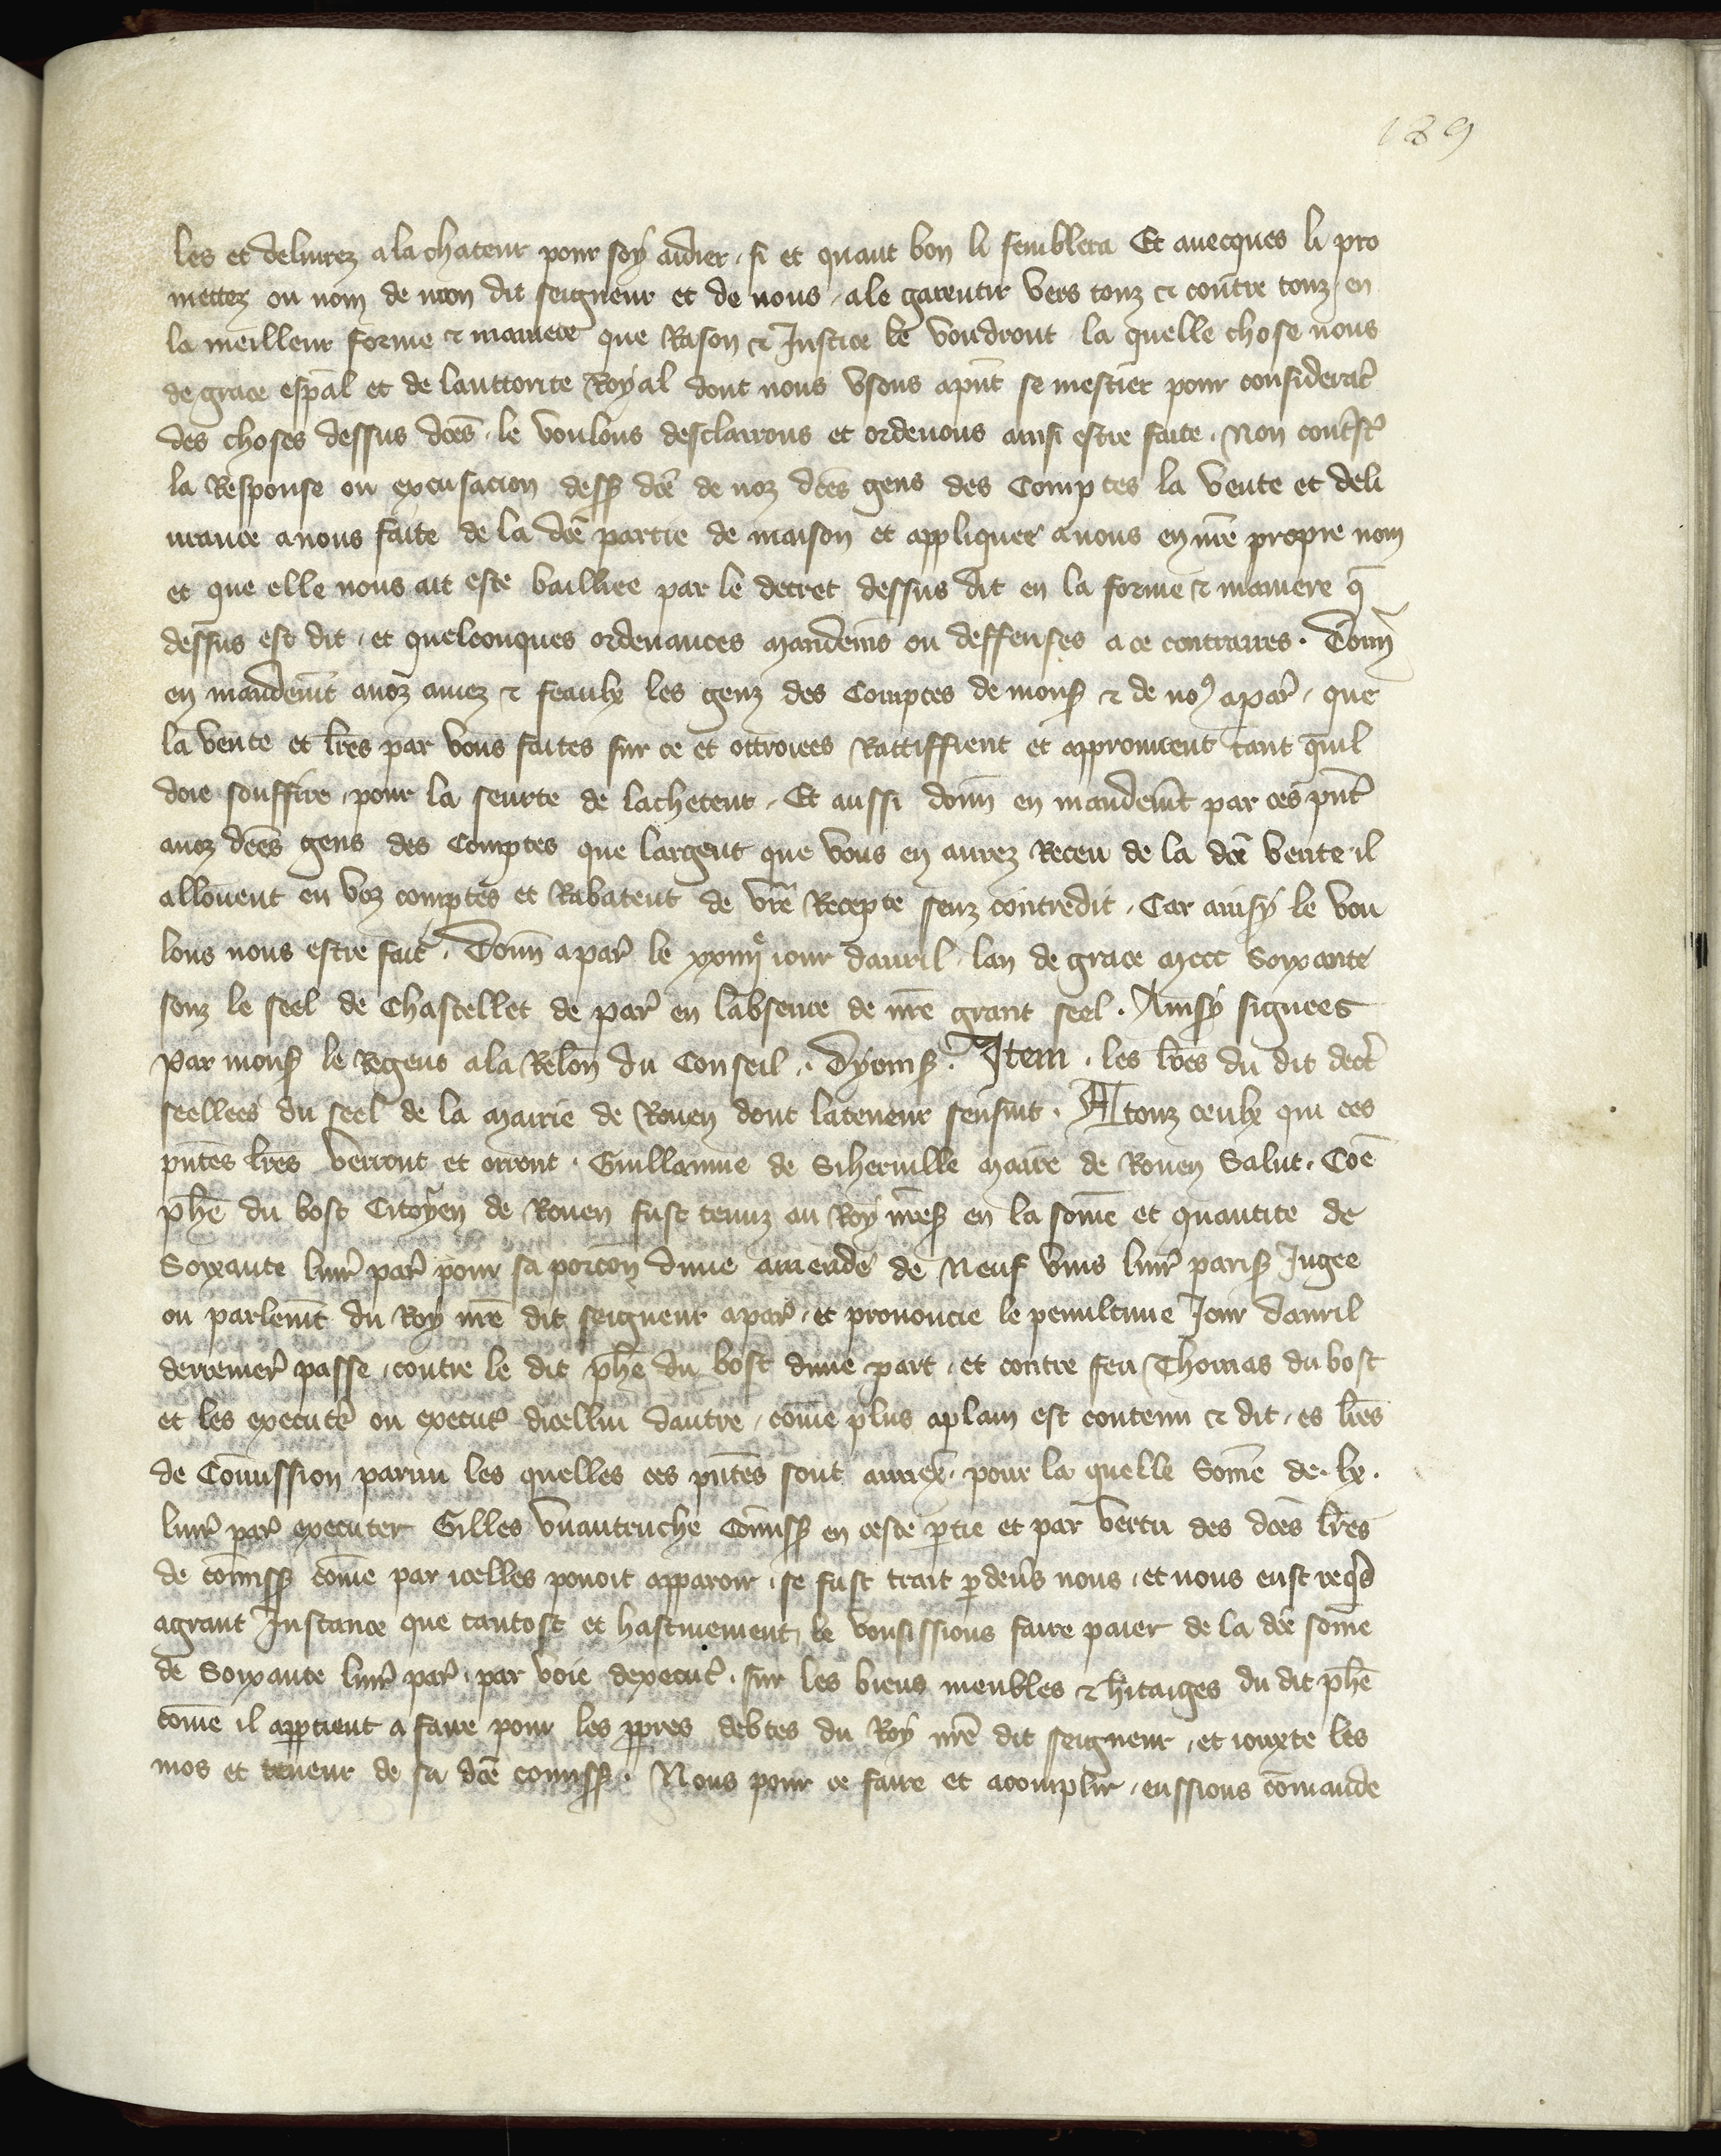 189
les et deliurez a la chateur pour soy aidier si et quant bon li semblera Et auecques li pro
mettez ou nom de mon dit seigneur et de nous ale garentir vers touz et contre touz en
la meilleur forme et maniere que Rason et Justice le voudront la quelle chose nous
de grace esp̄al et de lauttorite Royal dont nous vsons ap̄nt se mestier pour considerat̄
des choses dessus dc̄es le voulons desclairons et ordenons ainsi estre faite. Non cont̄st̄
la Response ou excusacion dess̄ dc̄e de noz dc̄es gens des Comptes la vente et deli
urance a nous faite de la dc̄e partie de maison et appliquer a nous en nr̄e propre nom
et que elle nous ait este bailliee par le decret dessus dit en la forme et maniere q̄
dessus est dit et quelconques ordenances mandem̄s ou deffenses a ce contraires. Donn̄
en mandem̄t anoz amez et feaulx les genz des Comptes de mons̄ et de no9 a par̄ que
la vente et lr̄es par vous faites sur ce et ottroiees Rattiffient et approuuent tant quil
doie souffire pour la seurte de lacheteur. Et aussi donn̄ en mandem̄t par ces pn̄t̄
anoz dc̄es gens des Comptes que largent que vous en aurez Receu de la dc̄e vente il
allouent en voz comptes et Rabatent de vr̄e Recepte senz contredit. Car ainsy le vou
lons nous estre fait. Donn̄ a par̄ le xxiiije iour dauril lan de grace mccc Soixante
souz le seel de Chastellet de par̄ en labsence de nr̄e grant seel. Ainsy signees
par mons̄ le Regens ala Relōn du Conseil. Dyonis̄. Item. les lr̄es du dit decr̄
seellees du seel de la mairie de Rouen dont lateneur sensuit. A touz ceulx qui ces
pn̄tes lr̄es verront et orront. Guillaume de Siheruille maire de Rouen Salut. Cōe
ph̄e du bosc Citoyen de Rouen fust tenuz au Roy nr̄es̄ en la som̄e et quantite de
Soixante liur̄ par̄ pour sa porcōn dune amende de Neuf vins liur̄ paris̄ Jugee
ou parlem̄t du Roy nr̄e dit seigneur a par̄ et prononcie le penultime Jour dauril
derrenier̄ passe contre le dit ph̄e du bosc dune part et contre feu Thomas du bosc
et les execut̄ ou execut̄ dicellui dautre com̄e plus aplain est contenu et dit es lr̄es
de Com̄ission parmi les quelles ces pn̄tes sont annex̄. pour la quelle Som̄e de. lx.
liur̄ par̄ executer Gilles vuautruche Com̄iss̄ en ceste p̄tie et par vertu des dc̄es lr̄es
de com̄iss̄ com̄e par icelles pouoit apparoir se fust trait p̄deu̅s nous et nous eust req̄s
agrant Instance que tantost et hastiuement le vousissions faire paier de la dc̄e som̄e
de Soixante liur̄ par̄. par voie dexecut̄. sur les biens meubles et h̄itaiges du dit ph̄e
com̄e il app̄tient a faire pour les p̄pres debtes du Roy nr̄e dit seigneur et iouxte les
mos et teneur de sa dc̄e com̄iss̄. Nous pour ce faire et acomplir eussions com̄ande